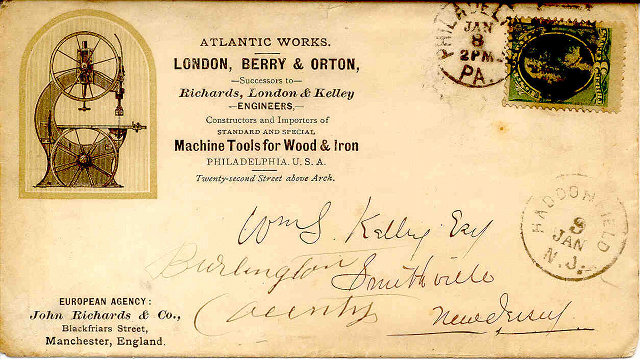 ATLANTIC WORKS.
LONDON, BERRY & ORTON,
—Successors to—
Richards, London & Kelley
—ENGINEERS,—
Constructors and Importers of
STANDARD AND SPECIAL
Machine Tools for Wood & Iron
PHILADELPHIA. U. S. A.
Twenty-second Street above Arch.
PHILADEL
JAN
8
2PM
PA.
HADDONFIELD
9
JAN
N.J.
Wm S. Kelley Esq
Burlington Smithville
County New Jersey
EUROPEAN AGENCY:
John Richards & Co.,
Blackfriars Street,
Manchester, England.